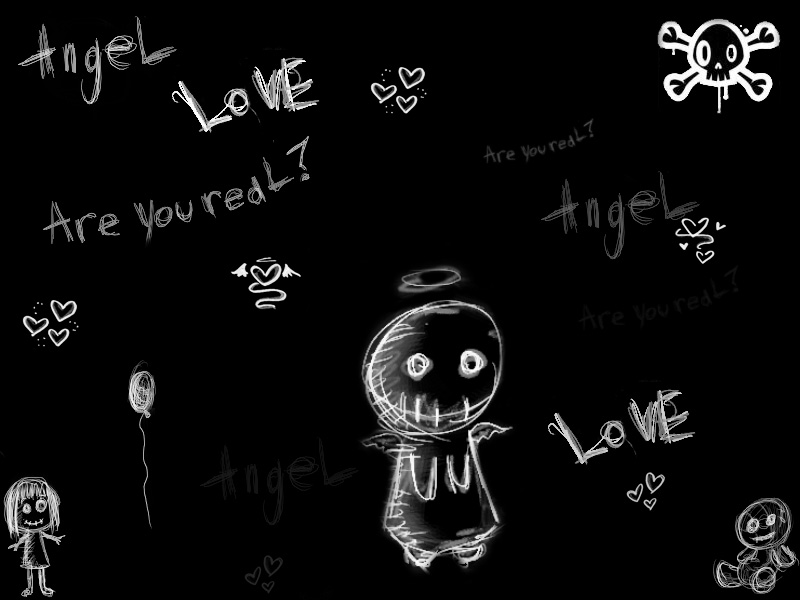 AngeL
LOVE
Are you reaL?
Are you reaL?
AngeL
Are you reaL?
LOVE
AngeL